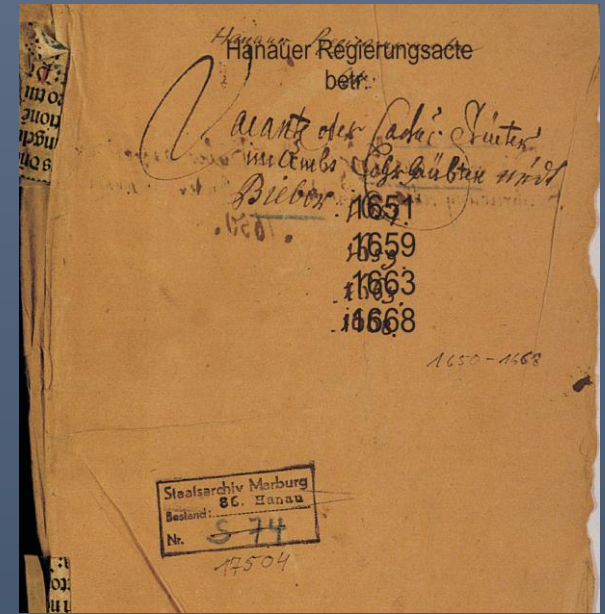 Hanauer Regierungsacte
betr:
Vacante oder Caduc: Güeter
im Ambt Lohrhaubten undt
Bieber.
1651
1659
1663
1668
1650-1668
Staatsarchiv Marburg
86. Hanau
Bestand:
Nr. S 74
17504